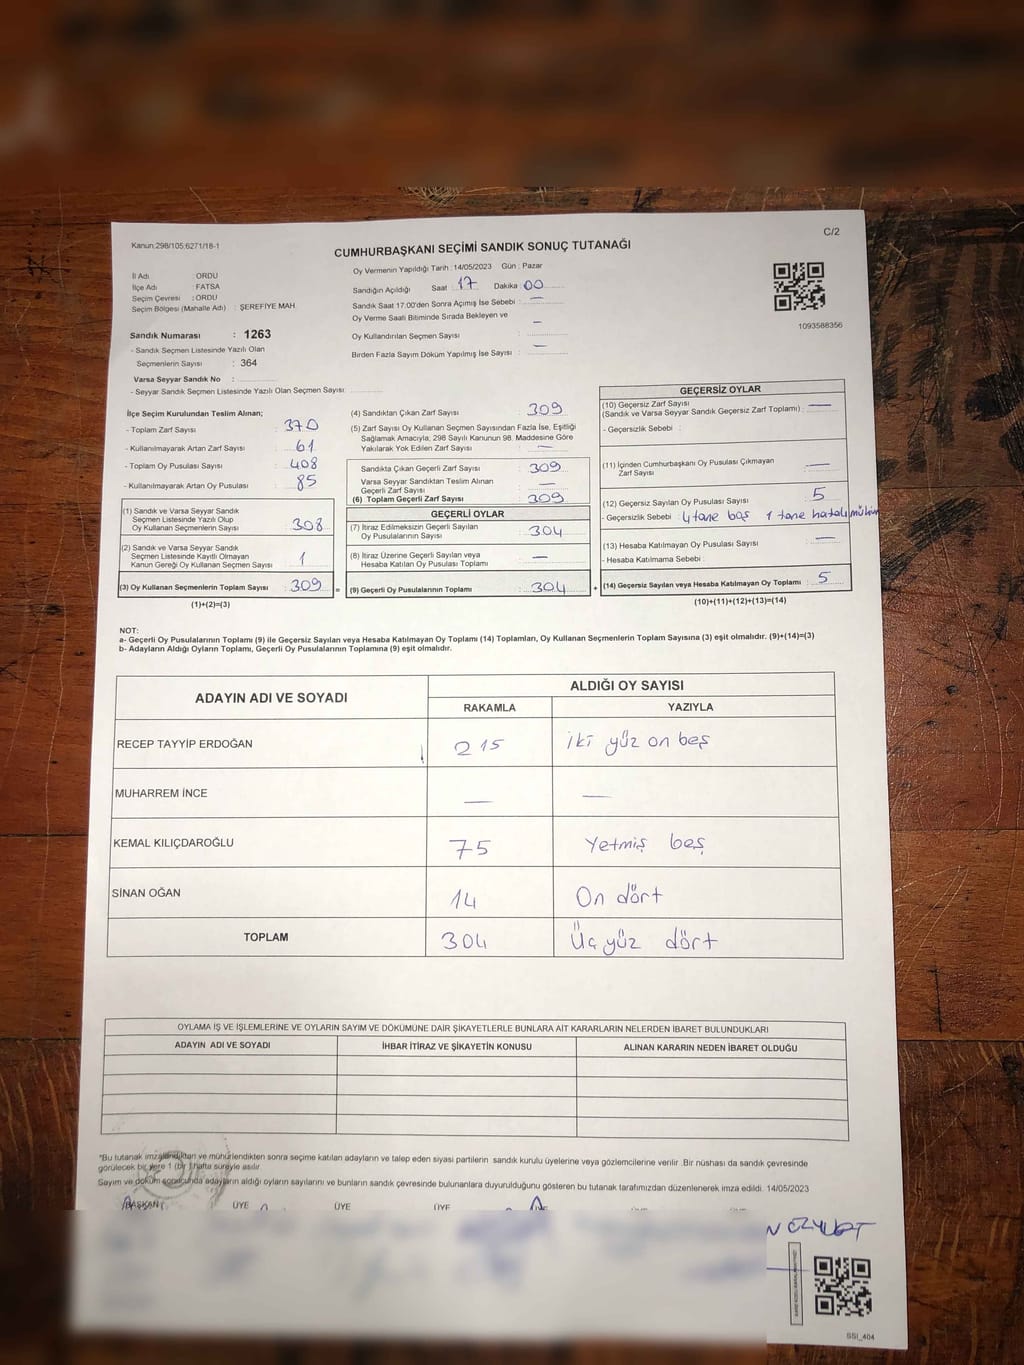 Kanun:298/105;6271/18-1
C/2
CUMHURBAŞKANI SEÇİMİ SANDIK SONUÇ TUTANAĞI
İl Adı : ORDU
İlçe Adı : FATSA
Seçim Çevresi : ORDU
Seçim Bölgesi (Mahalle Adı) : ŞEREFİYE MAH.
Sandık Numarası : 1263
- Sandık Seçmen Listesinde Yazılı Olan
Seçmenlerin Sayısı : 364
Varsa Seyyar Sandık No :
- Seyyar Sandık Seçmen Listesinde Yazılı Olan Seçmen Sayısı:
Oy Vermenin Yapıldığı Tarih : 14/05/2023 Gün : Pazar
Sandığın Açıldığı Saat : 17 Dakika : 00
Sandık Saat 17.00'den Sonra Açımış İse Sebebi : —
Oy Verme Saati Bitiminde Sırada Bekleyen ve —
Oy Kullandırılan Seçmen Sayısı :
Birden Fazla Sayım Döküm Yapılmış İse Sayısı : —
1093588356
İlçe Seçim Kurulundan Teslim Alınan;
- Toplam Zarf Sayısı : 370
- Kullanılmayarak Artan Zarf Sayısı : 61
- Toplam Oy Pusulası Sayısı : 408
- Kullanılmayarak Artan Oy Pusulası : 85
(1) Sandık ve Varsa Seyyar Sandık
Seçmen Listesinde Yazılı Olup
Oy Kullanan Seçmenlerin Sayısı : 308
(2) Sandık ve Varsa Seyyar Sandık
Seçmen Listesinde Kayıtlı Olmayan
Kanun Gereği Oy Kullanan Seçmen Sayısı : 1
(3) Oy Kullanan Seçmenlerin Toplam Sayısı : 309 =
(1)+(2)=(3)
(4) Sandıktan Çıkan Zarf Sayısı : 309
(5) Zarf Sayısı Oy Kullanan Seçmen Sayısından Fazla İse, Eşitliği
Sağlamak Amacıyla; 298 Sayılı Kanunun 98. Maddesine Göre
Yakılarak Yok Edilen Zarf Sayısı : —
Sandıkta Çıkan Geçerli Zarf Sayısı : 309
Varsa Seyyar Sandıktan Teslim Alınan
Geçerli Zarf Sayısı : —
(6) Toplam Geçerli Zarf Sayısı : 309
GEÇERLİ OYLAR
(7) İtiraz Edilmeksizin Geçerli Sayılan
Oy Pusulalarının Sayısı : 304
(8) İtiraz Üzerine Geçerli Sayılan veya
Hesaba Katılan Oy Pusulası Toplamı : —
(9) Geçerli Oy Pusulalarının Toplamı : 304 +
GEÇERSİZ OYLAR
(10) Geçersiz Zarf Sayısı
(Sandık ve Varsa Seyyar Sandık Geçersiz Zarf Toplamı) : —
- Geçersizlik Sebebi :
(11) İçinden Cumhurbaşkanı Oy Pusulası Çıkmayan
Zarf Sayısı : —
(12) Geçersiz Sayılan Oy Pusulası Sayısı : 5
- Geçersizlik Sebebi : 4 tane boş 1 tane hatalı mühür
(13) Hesaba Katılmayan Oy Pusulası Sayısı : —
- Hesaba Katılmama Sebebi :
(14) Geçersiz Sayılan veya Hesaba Katılmayan Oy Toplamı : 5
(10)+(11)+(12)+(13)=(14)
NOT:
a- Geçerli Oy Pusulalarının Toplamı (9) ile Geçersiz Sayılan veya Hesaba Katılmayan Oy Toplamı (14) Toplamları, Oy Kullanan Seçmenlerin Toplam Sayısına (3) eşit olmalıdır. (9)+(14)=(3)
b- Adayların Aldığı Oyların Toplamı, Geçerli Oy Pusulalarının Toplamına (9) eşit olmalıdır.
ADAYIN ADI VE SOYADI ALDIĞI OY SAYISI
RAKAMLA YAZIYLA
RECEP TAYYİP ERDOĞAN 215 iki yüz on beş
MUHARREM İNCE — —
KEMAL KILIÇDAROĞLU 75 Yetmiş beş
SİNAN OĞAN 14 On dört
TOPLAM 304 Üç yüz dört
OYLAMA İŞ VE İŞLEMLERİNE VE OYLARIN SAYIM VE DÖKÜMÜNE DAİR ŞİKAYETLERLE BUNLARA AİT KARARLARIN NELERDEN İBARET BULUNDUKLARI
ADAYIN ADI VE SOYADI İHBAR İTİRAZ VE ŞİKAYETİN KONUSU ALINAN KARARIN NEDEN İBARET OLDUĞU
*Bu tutanak imzalandıktan ve mühürlendikten sonra seçime katılan adayların ve talep eden siyasi partilerin sandık kurulu üyelerine veya gözlemcilerine verilir. Bir nüshası da sandık çevresinde
görülecek bir yere 1 (bir) hafta süreyle asılır.
Sayım ve döküm sonucunda adayların aldığı oyların sayılarını ve bunların sandık çevresinde bulunanlara duyurulduğunu gösteren bu tutanak tarafımızdan düzenlenerek imza edildi. 14/05/2023
BAŞKAN ÜYE ÜYE ÜYE
SSI_404